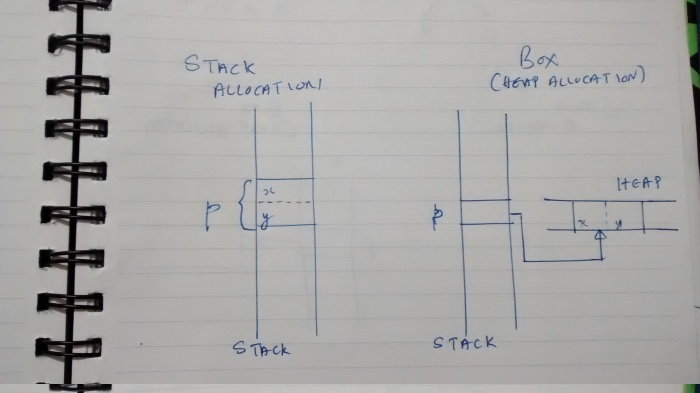 STACK
ALLOCATION
p
x
y
STACK
BOX
(HEAP ALLOCATION)
HEAP
p
x y
STACK